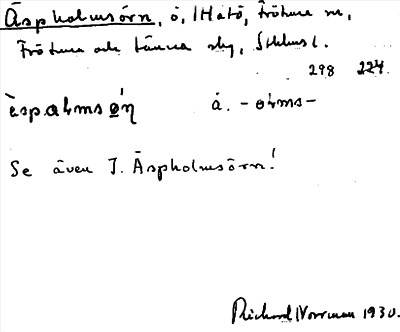 Äspholmsörn, ö, Håtö, Frötuna sn,
Frötuna och Länna skg, Sthlms l.
298 224.
èspȧlmsǿń å. -olms-
Se även I. Äspholmsörn!
Richard Norrman 1930.